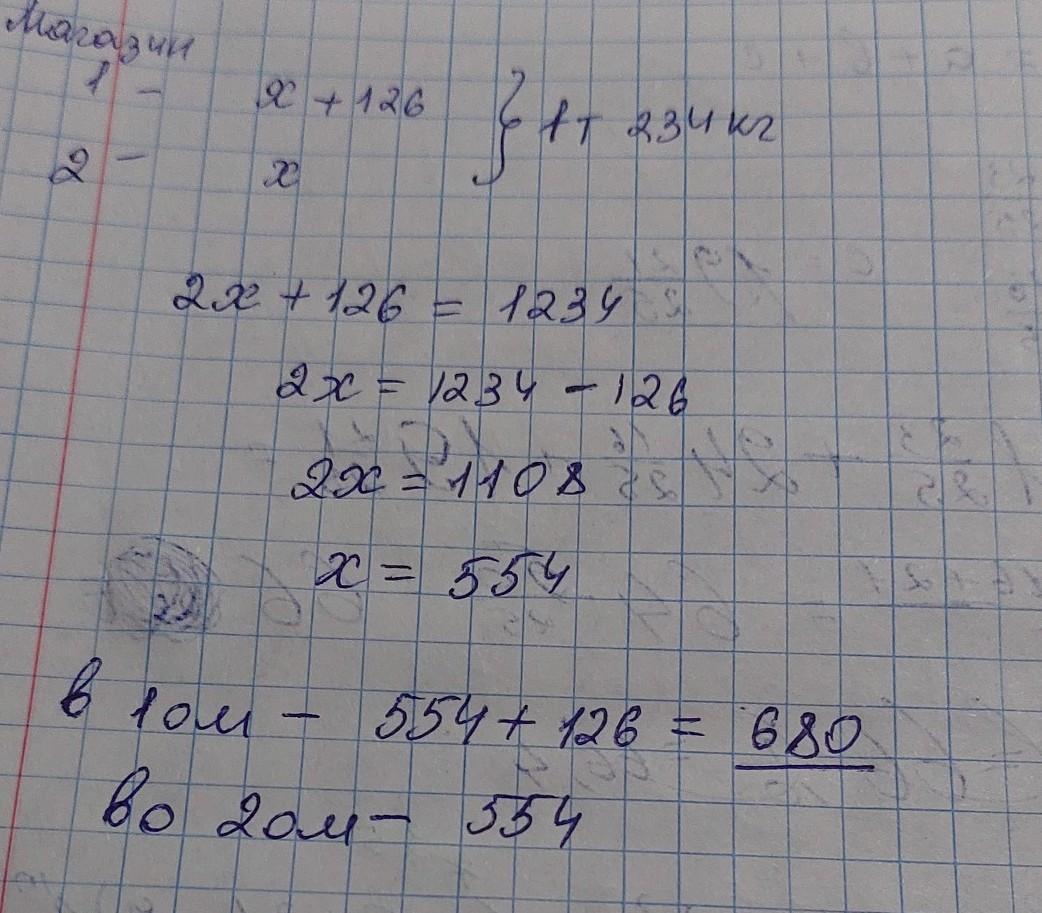 Магазин
1 - x + 126 } 1т 234 кг
2 - x
2x + 126 = 1234
2x = 1234 - 126
2x = 1108
x = 554
в 1ом - 554 + 126 = 680
во 2ом - 554